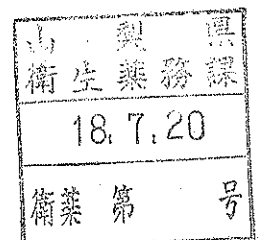 山梨県
衛生薬務課
18.7.20
衛薬第 号